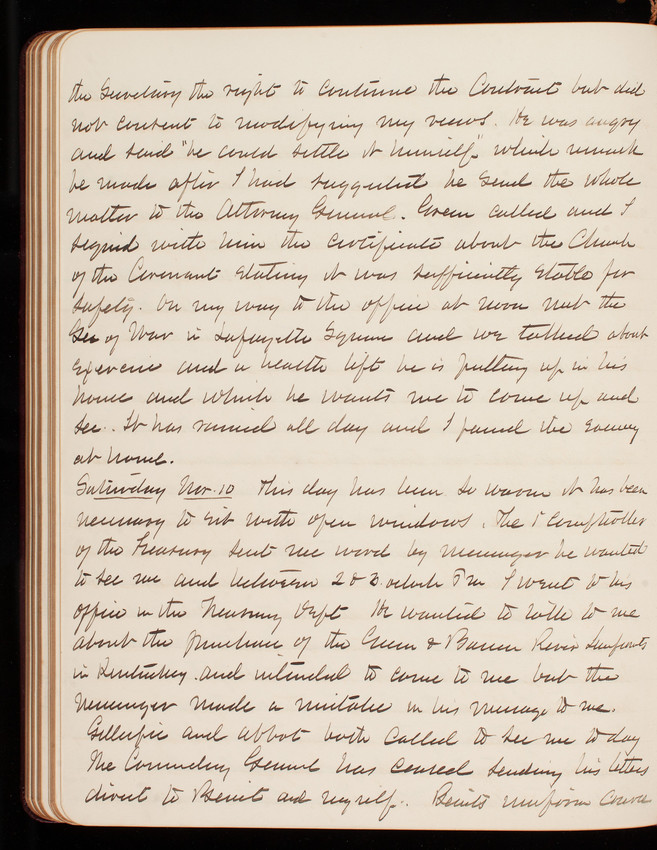 the Secretary the right to continue the Contract but did
not consent to modifying my views. He was angry
and said "he could settle it himself" which remark
he made after I had suggested he send the whole
matter to the Attorney General. Green called and I
signed with him the certificate about the Church
of the Covenant stating it was sufficiently stable for
safety. On my way to the office at noon met the
Sec of War in Lafayette Square and we talked about
exercise and a health lift he is putting up in his
house and which he wants me to come up and
see. It has rained all day and I passed the evening
at home.
Saturday Nov. 10 This day has been so warm it has been
necessary to sit with open windows. The 1 Comptroller
of the Treasury sent me word by messenger he wanted
to see me and between 2 & 3 oclock P m I went to his
office in the Treasury Dept He wanted to talk to me
about the purchase of the Green & Barren River
in Kentucky and intended to come to me but the
messenger made a mistake in his message to me.
Gillespie and Abbot both called to see me to day
The Commdg General has ceased sending his letters
direct to Benét and myself. Benéts uniform